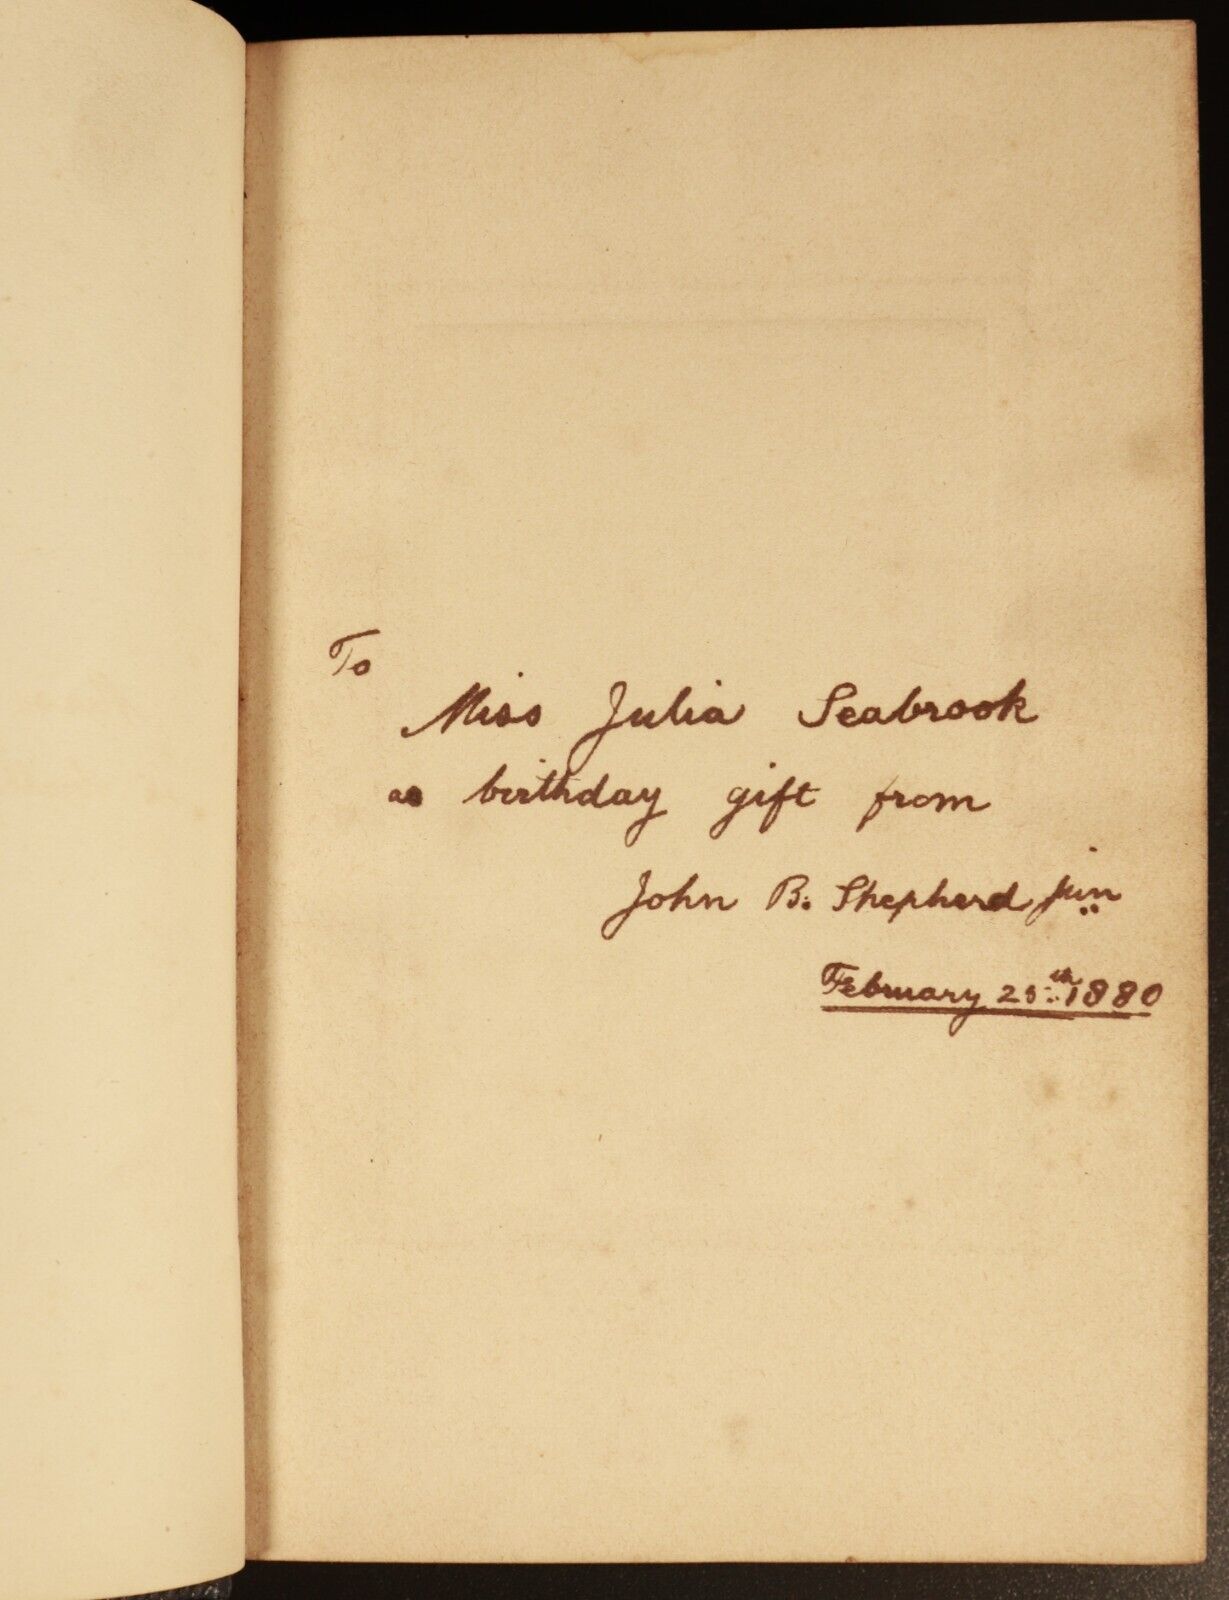 To
Miss Julia Seabrook
as birthday gift from
John B. Shepherd jun
February 25th 1880